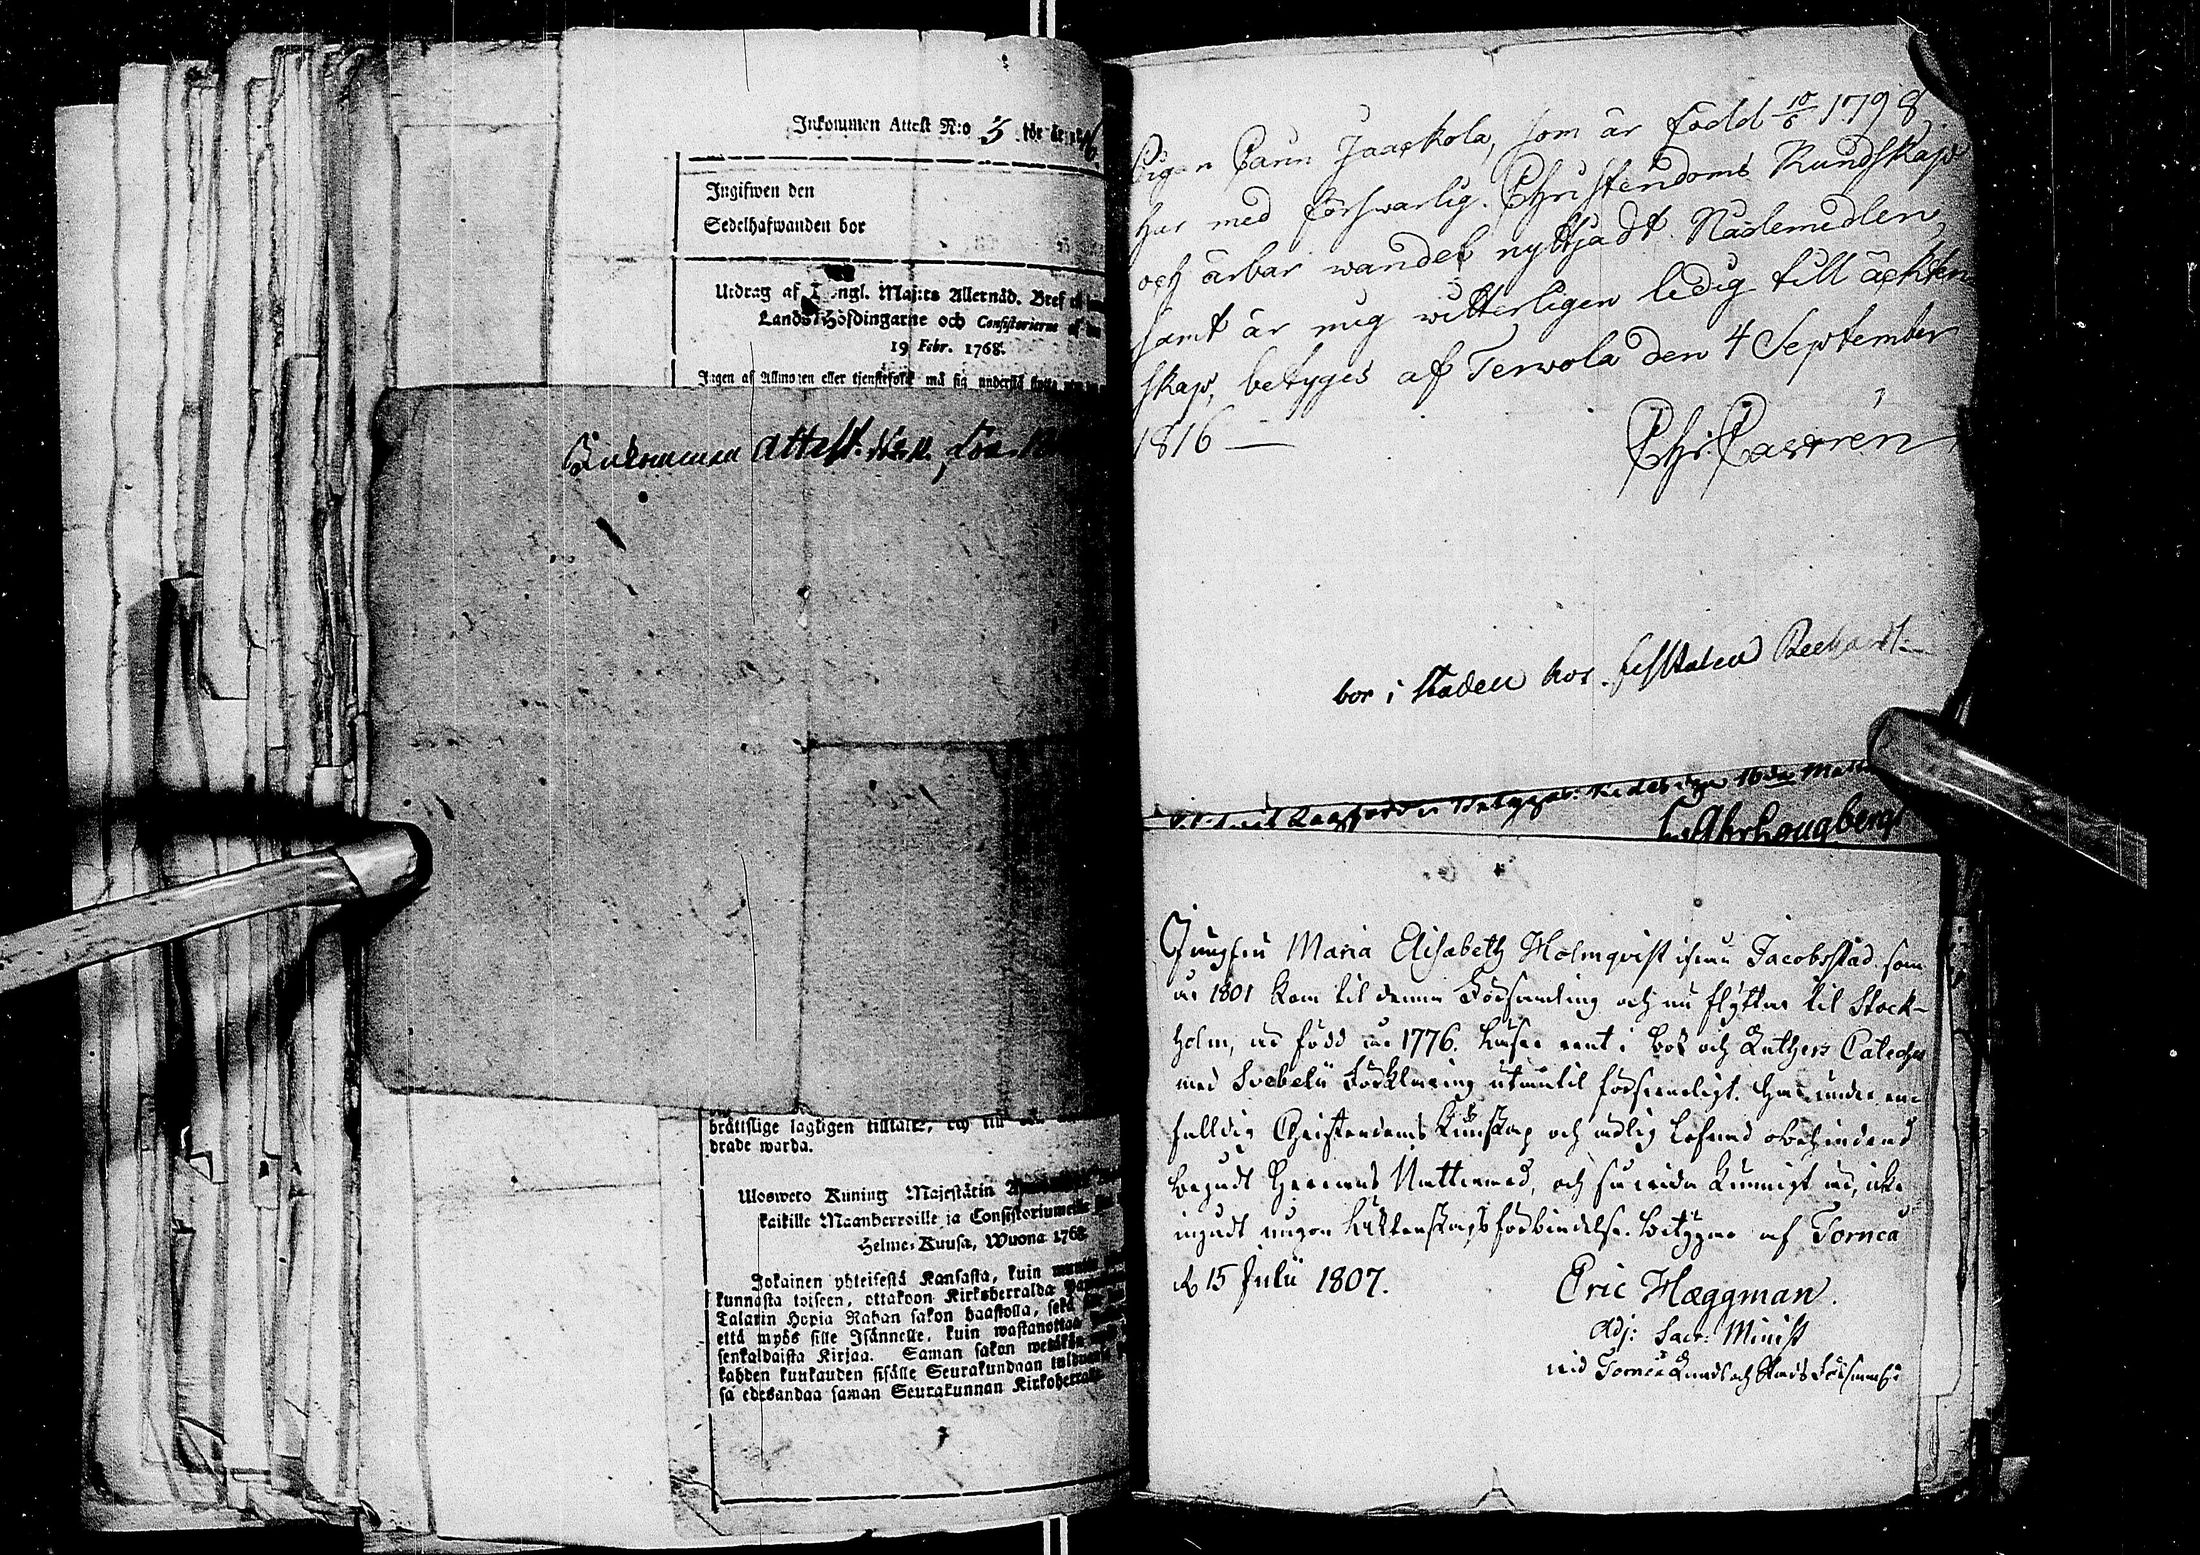 Inkommen Attest N:o 5 för år 16
Ingifwen den
Sedelhafwanden bor
Utdrag af Kongl. Maj:ts Allernåd. Bref til
Lands Höfdingarne och Consistorierne af den
19 Febr. 1768.
Ingen af Allmogen eller tjenstefolk må sig understå flytta
Inkommen Attest. N:o
brättslige lagligen tilltalte, och till
drade warda.
Uloswето Kuning Majestätin
kaikille Maanherroille ja Consistoriumeille
Helme-Kuusa, Wuona 1768
Jokainen yhteisestä Kansasta, kuin
kunnasta toiseen, ottakoon Kirkoherralda
Talarin Hopia Rahan sakon haastolla, sekä
että myös sille Isännelle, kuin wastanottaa
senkaldaista Kirjaa. Saman sakon wetäkön
kahden kuukauden sisälle Seurakundaan tulduansa
sa edesandaa saman Seurakunnan Kirkoherralle
Pigan Carin Jaackola, som är född 10/6 1798,
har med förswarlig Christendoms Kundskap
och ärbar wandel nyttjadt Nådemedlen,
samt är mig witterligen ledig till äckten
skap, betyges af Terwola den 4 September
1816 —
Chr: Castrén
bor i staden hos fiskalen
16de
Jungfru Maria Elisabeth Holmqvist ifrån Jacobsstad som
år 1801 kom til denna Församling och nu flyttar til Stock-
holm, är född år 1776. Läser rent i bok och Luthers Catechis
med Svebelii Förklaring utantil försvarligt. Har under en-
falldig Christendoms Kunskap och ärlig lefnad obehindrad
begådt Herrans Nattvard, och så vida kunnigt är, icke
ingådt någon Ecktenskaps förbindelse. Betygas af Torneå
d. 15 Julii 1807.
Eric Hæggman.
Adj: Sacr: Minist
vid Torneå Lands och Stads Församl:r